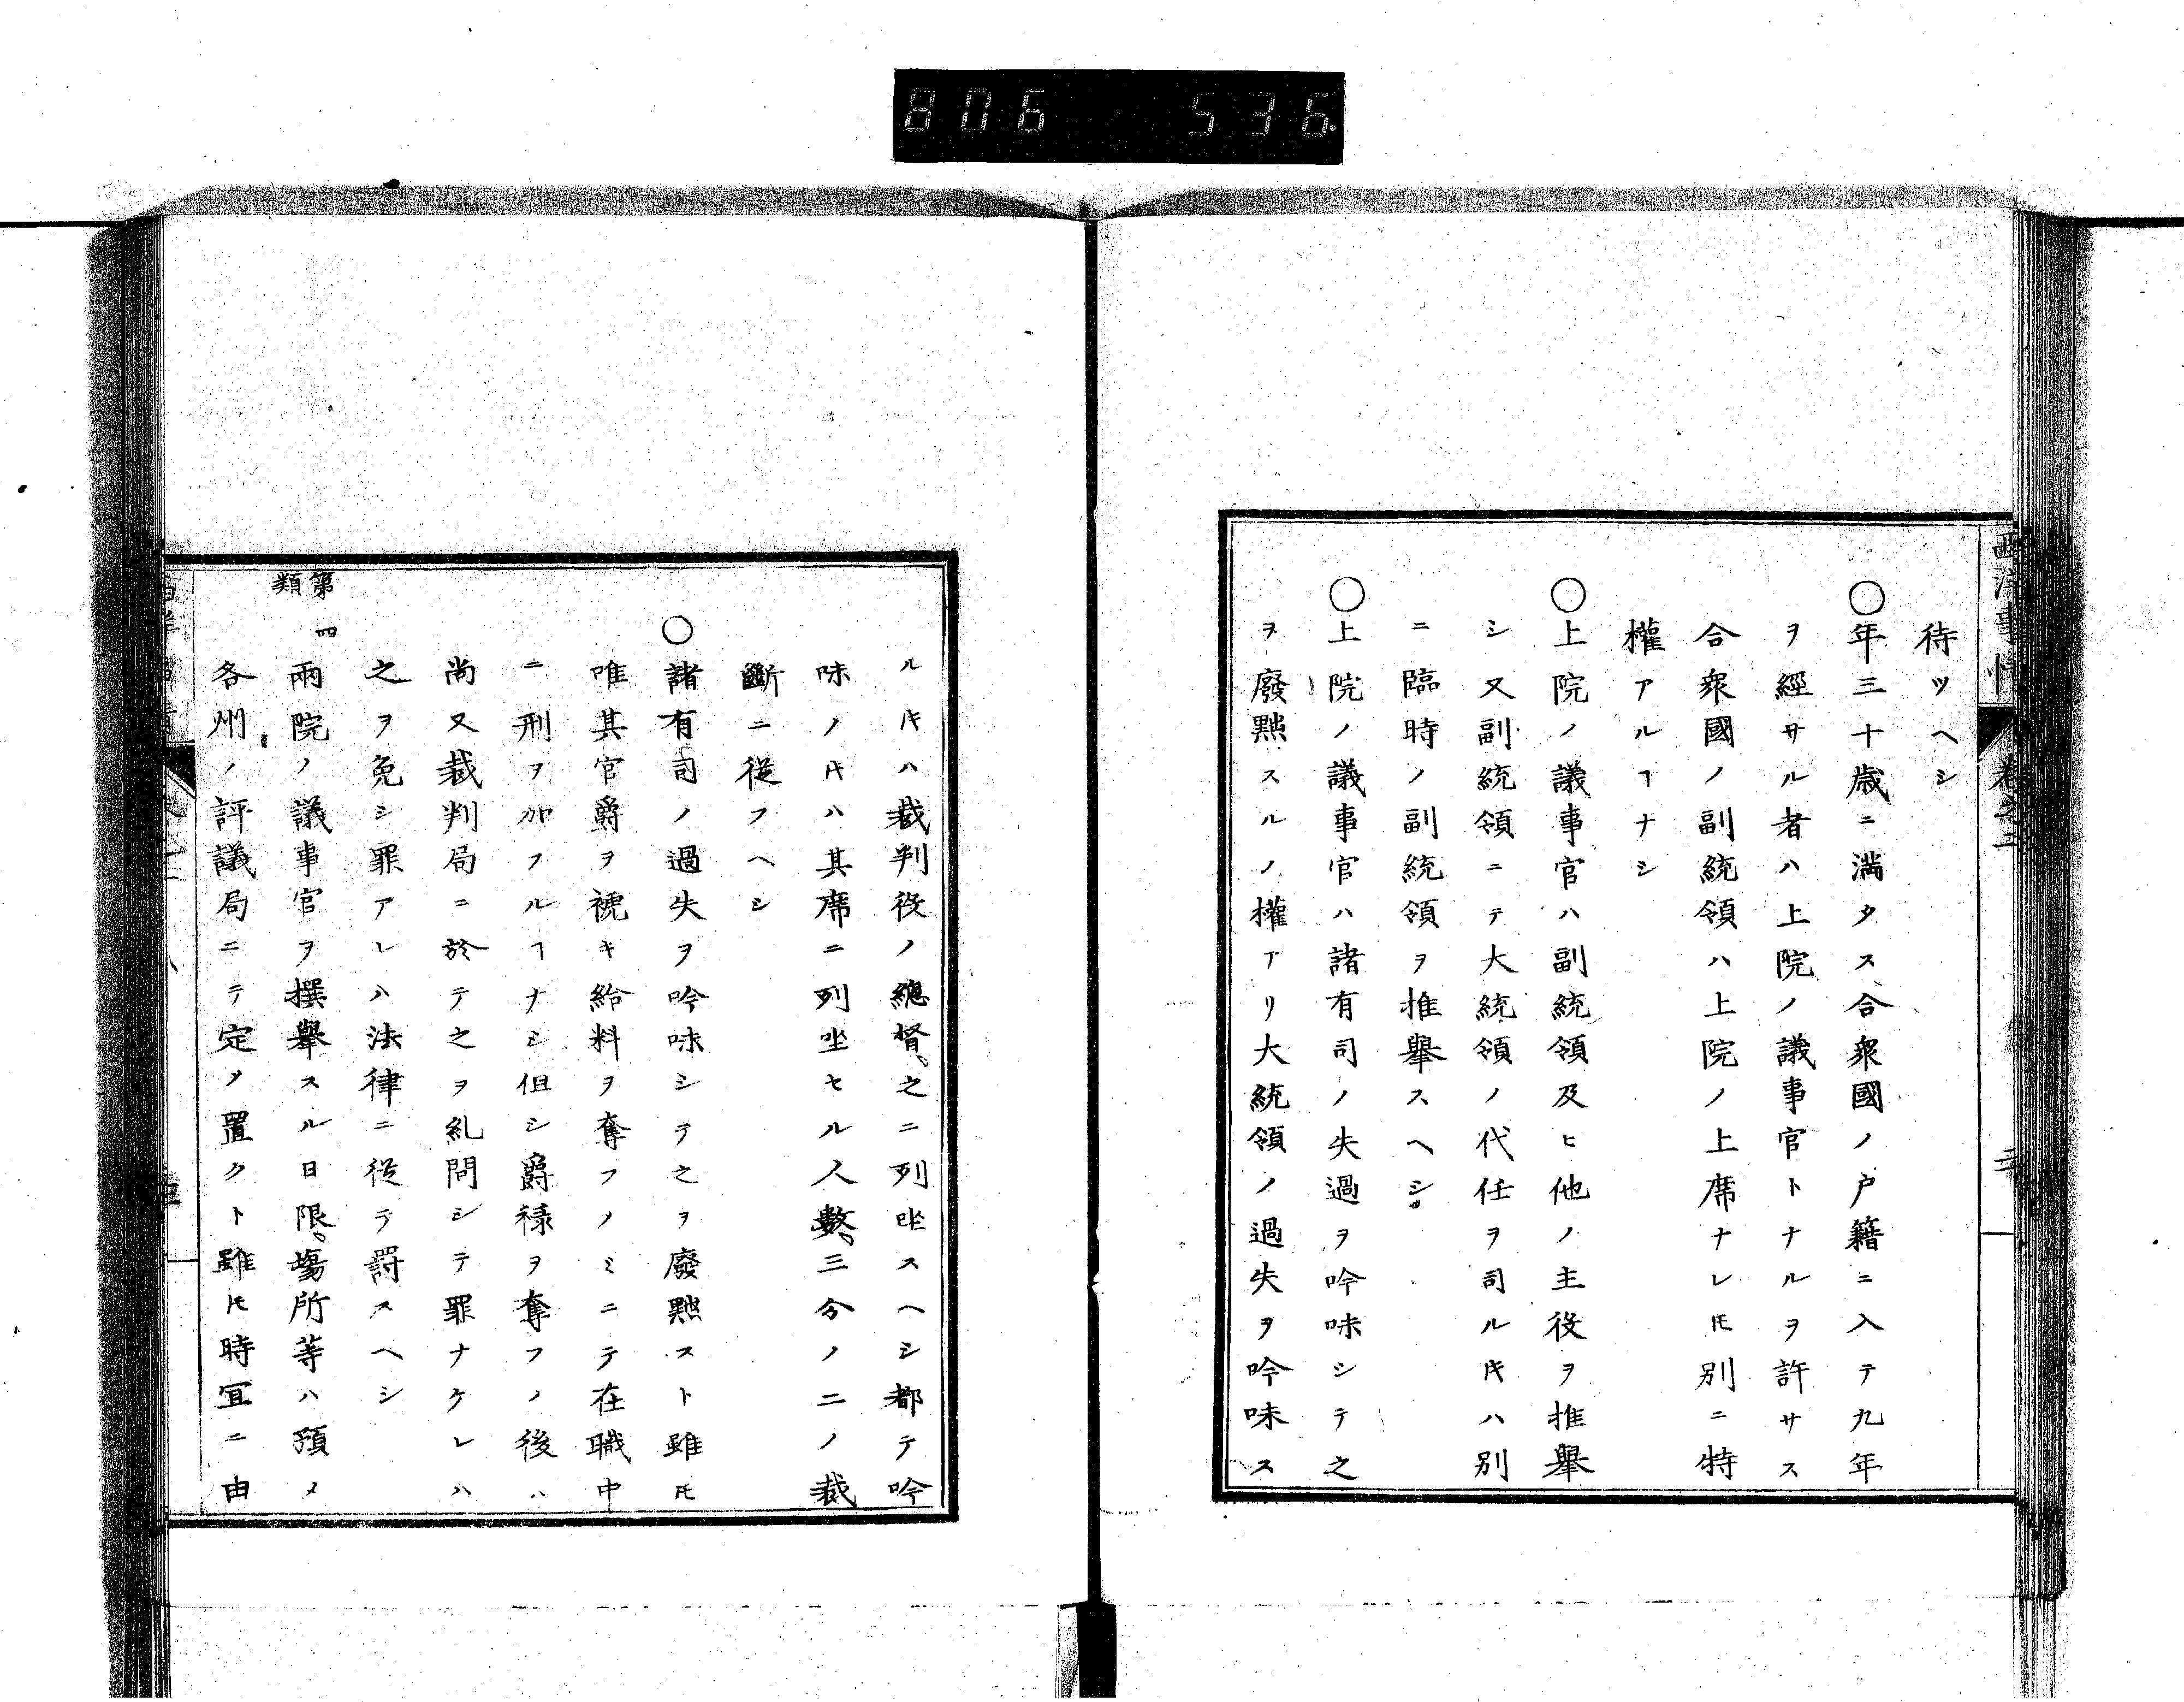 806 536
待ツヘシ
○年三十歳ニ満タス合衆國ノ戸籍ニ入テ九年
ヲ經サル者ハ上院ノ議事官トナルヲ許サス
合衆國ノ副統領ハ上院ノ上席ナレ𪜈別ニ特
權アルヿナシ
○上院ノ議事官ハ副統領及ヒ他ノ主役ヲ推舉
シ又副統領ニテ大統領ノ代任ヲ司ルキハ別
ニ臨時ノ副統領ヲ推舉スヘシ
○上院ノ議事官ハ諸有司ノ失過ヲ吟味シテ之
ヲ廢黜スルノ權アリ大統領ノ過失ヲ吟味ス
ルキハ裁判役ノ總督之ニ列坐スヘシ都テ吟
味ノキハ其席ニ列坐セル人數三分ノ二ノ裁
斷ニ從フヘシ
○諸有司ノ過失ヲ吟味シテ之ヲ廢黜スト雖𪜈
唯其官爵ヲ褫キ給料ヲ奪フノミニテ在職中
ニ刑ヲ加フルヿナシ但シ爵祿ヲ奪フノ後ハ
尚又裁判局ニ於テ之ヲ糺問シテ罪ナケレハ
之ヲ免シ罪アレハ法律ニ從テ罸スヘシ
第四類
兩院ノ議事官ヲ撰舉スル日限場所等ハ預メ
各州ノ評議局ニテ定メ置クト雖𪜈時冝ニ由